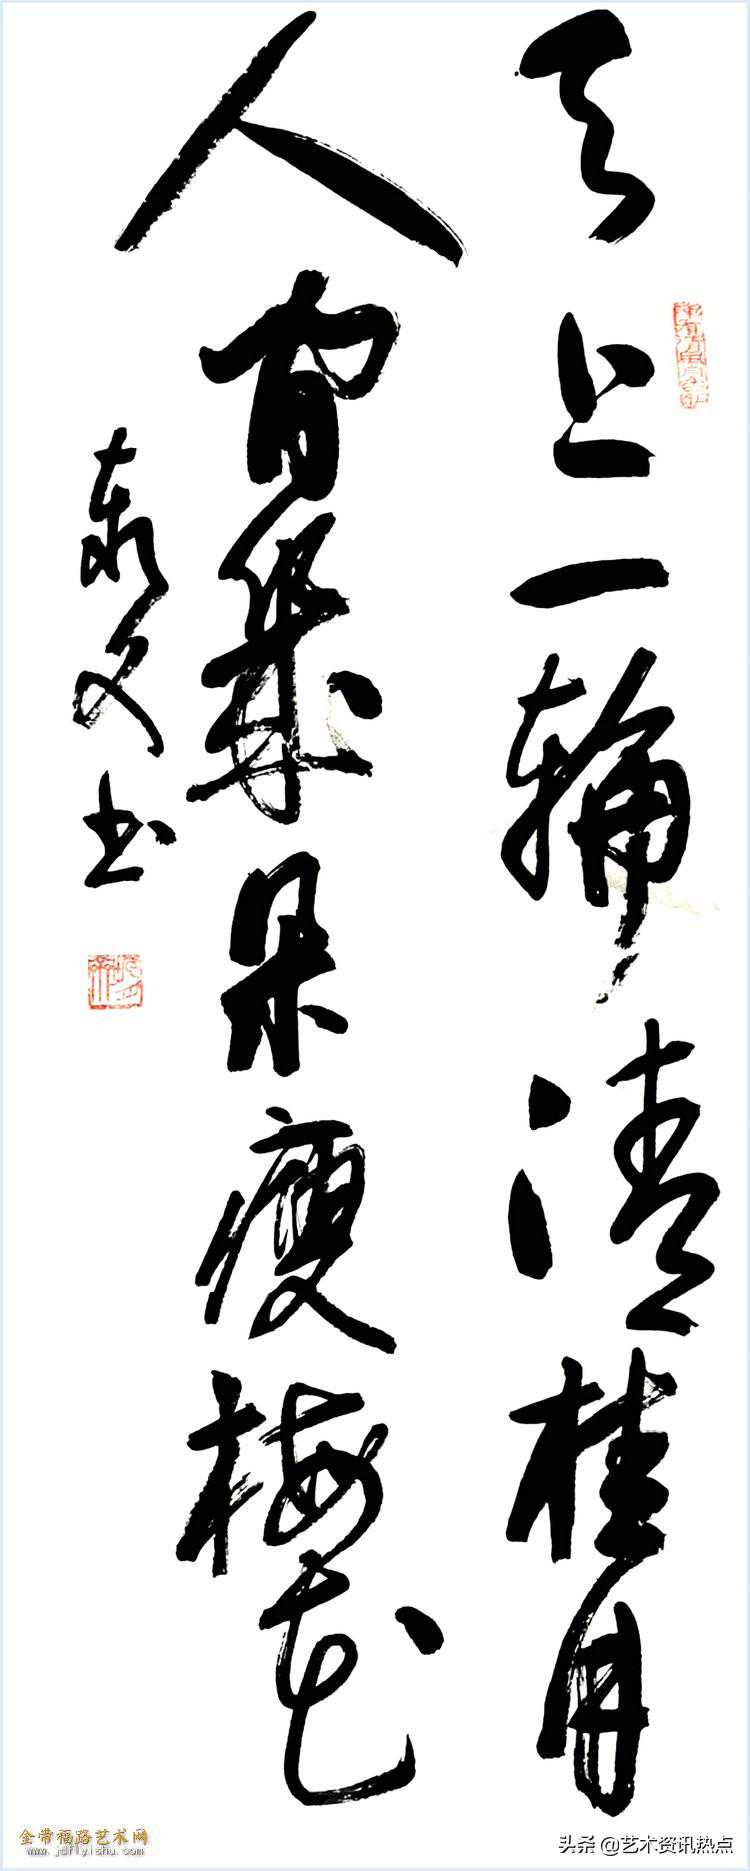 天上一轮清桂月
人間幾朵瘦梅花
泰文书
金带福路艺术网
www.jdflyishu.com
头条 @艺术资讯热点